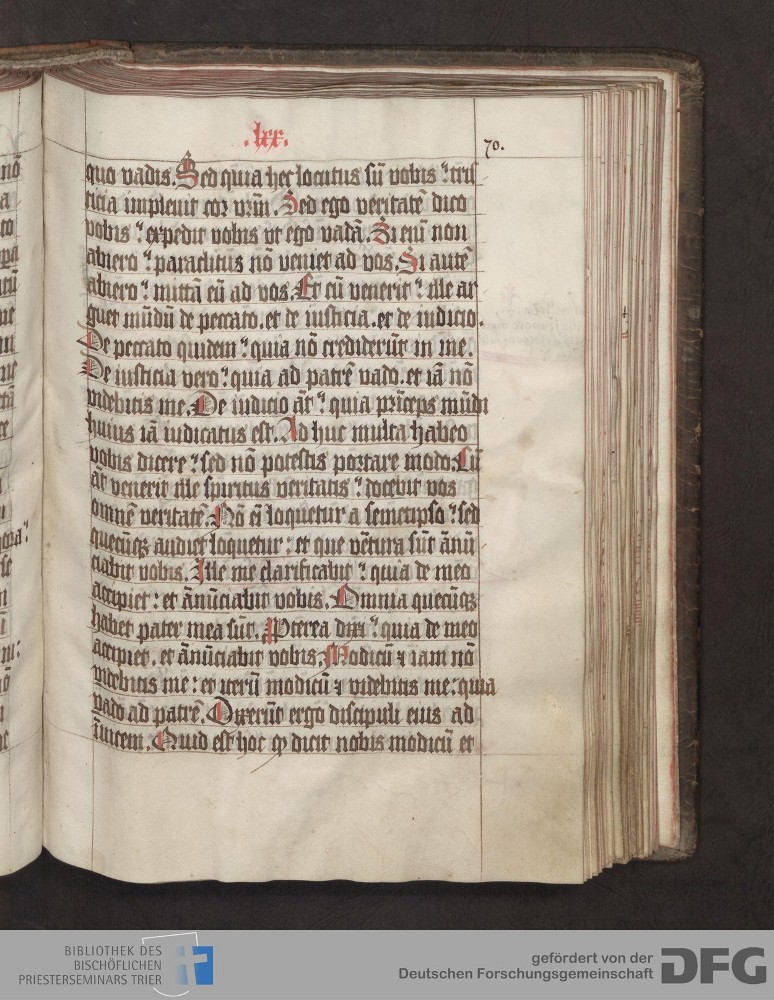 .lxx.
70.
quo vadis. Sed quia hec locutus sū vobis : tris
ticia impleuit cor vr̄m. Sed ego veritatē dico
vobis : expedit vobis vt ego vadā. Si enī non
abiero : paraclitus nō veniet ad vos. Si autē
abiero : mittā eū ad vos. Et cū venerit : ille ar
guet mūdū de peccato. et de iusticia. et de iudicio.
De peccato quidem : quia nō crediderūt in me.
De iusticia vero : quia ad patrē vado. et iā nō
videbitis me. De iudicio āt : quia prīceps mūdi
huius iā iudicatus est. Ad huc multa habeo
vobis dicere : sed nō potestis portare modo. Cū
āt venerit ille spiritus veritatis : docebit vos
omnē veritatē. Nō eī loquetur a semetipso : sed
quecūqꝫ audiet loquetur : et que vētura sūt ānū
ciabit vobis. Ille me clarificabit : quia de meo
accipiet : et ānūciabit vobis. Omnia quecūqꝫ
habet pater mea sūt. Pterea dixi : quia de meo
accipiet. et ānūciabit vobis. Modicū ⁊ iam nō
videbitis me : et iterū modicū ⁊ videbitis me : quia
vado ad patrē. Dixerūt ergo discipuli eius ad
īuicem. Quid est hoc ꝙ dicit nobis modicū et
BIBLIOTHEK DES
BISCHÖFLICHEN
PRIESTERSEMINARS TRIER
gefördert von der
Deutschen Forschungsgemeinschaft
DFG